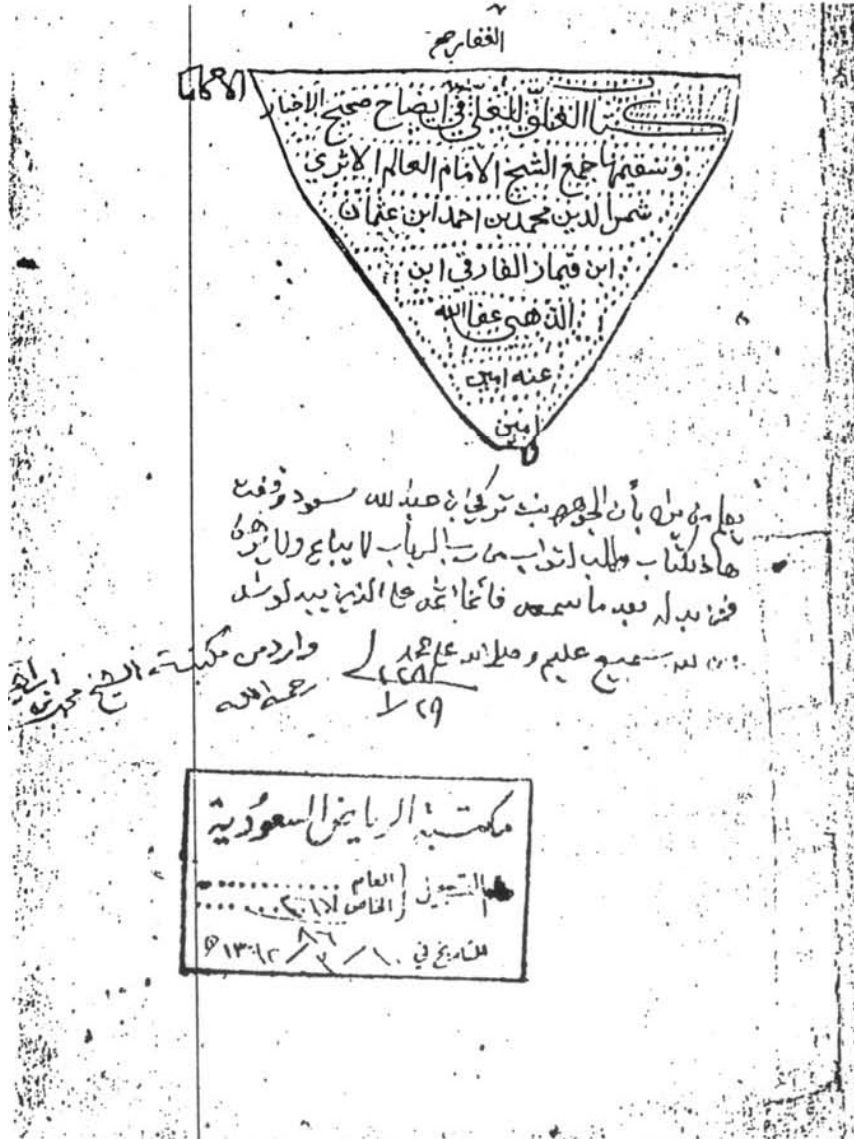 الغفار
كتاب العلو للعلي في ايضاح صحيح الاخبار
وسقيمها جمع الشيخ الامام العالم الاثري
شمس الدين محمد بن احمد ابن عثمان
ابن قيماز الفارقي ابن
الذهبي عفا الله
عنه امين
امين
يعلم من يراه بأن الجوهره بنت تركي ابن عبد الله سعود وقفت
هاذ لكتاب طلب لثواب من رب الرباب لا يباع ولا يرهن
فمن بدله بعد ما سمعه فانما اثمه على الذين يبدلونه
ان لله سميع عليم وصلى الله على محمد
وارد من مكتبة الشيخ محمد بن ابراهيم
رحمه الله
مكتبة الرياض السعودية
التسجيل العام
الخاص
٨٦
التاريخ في